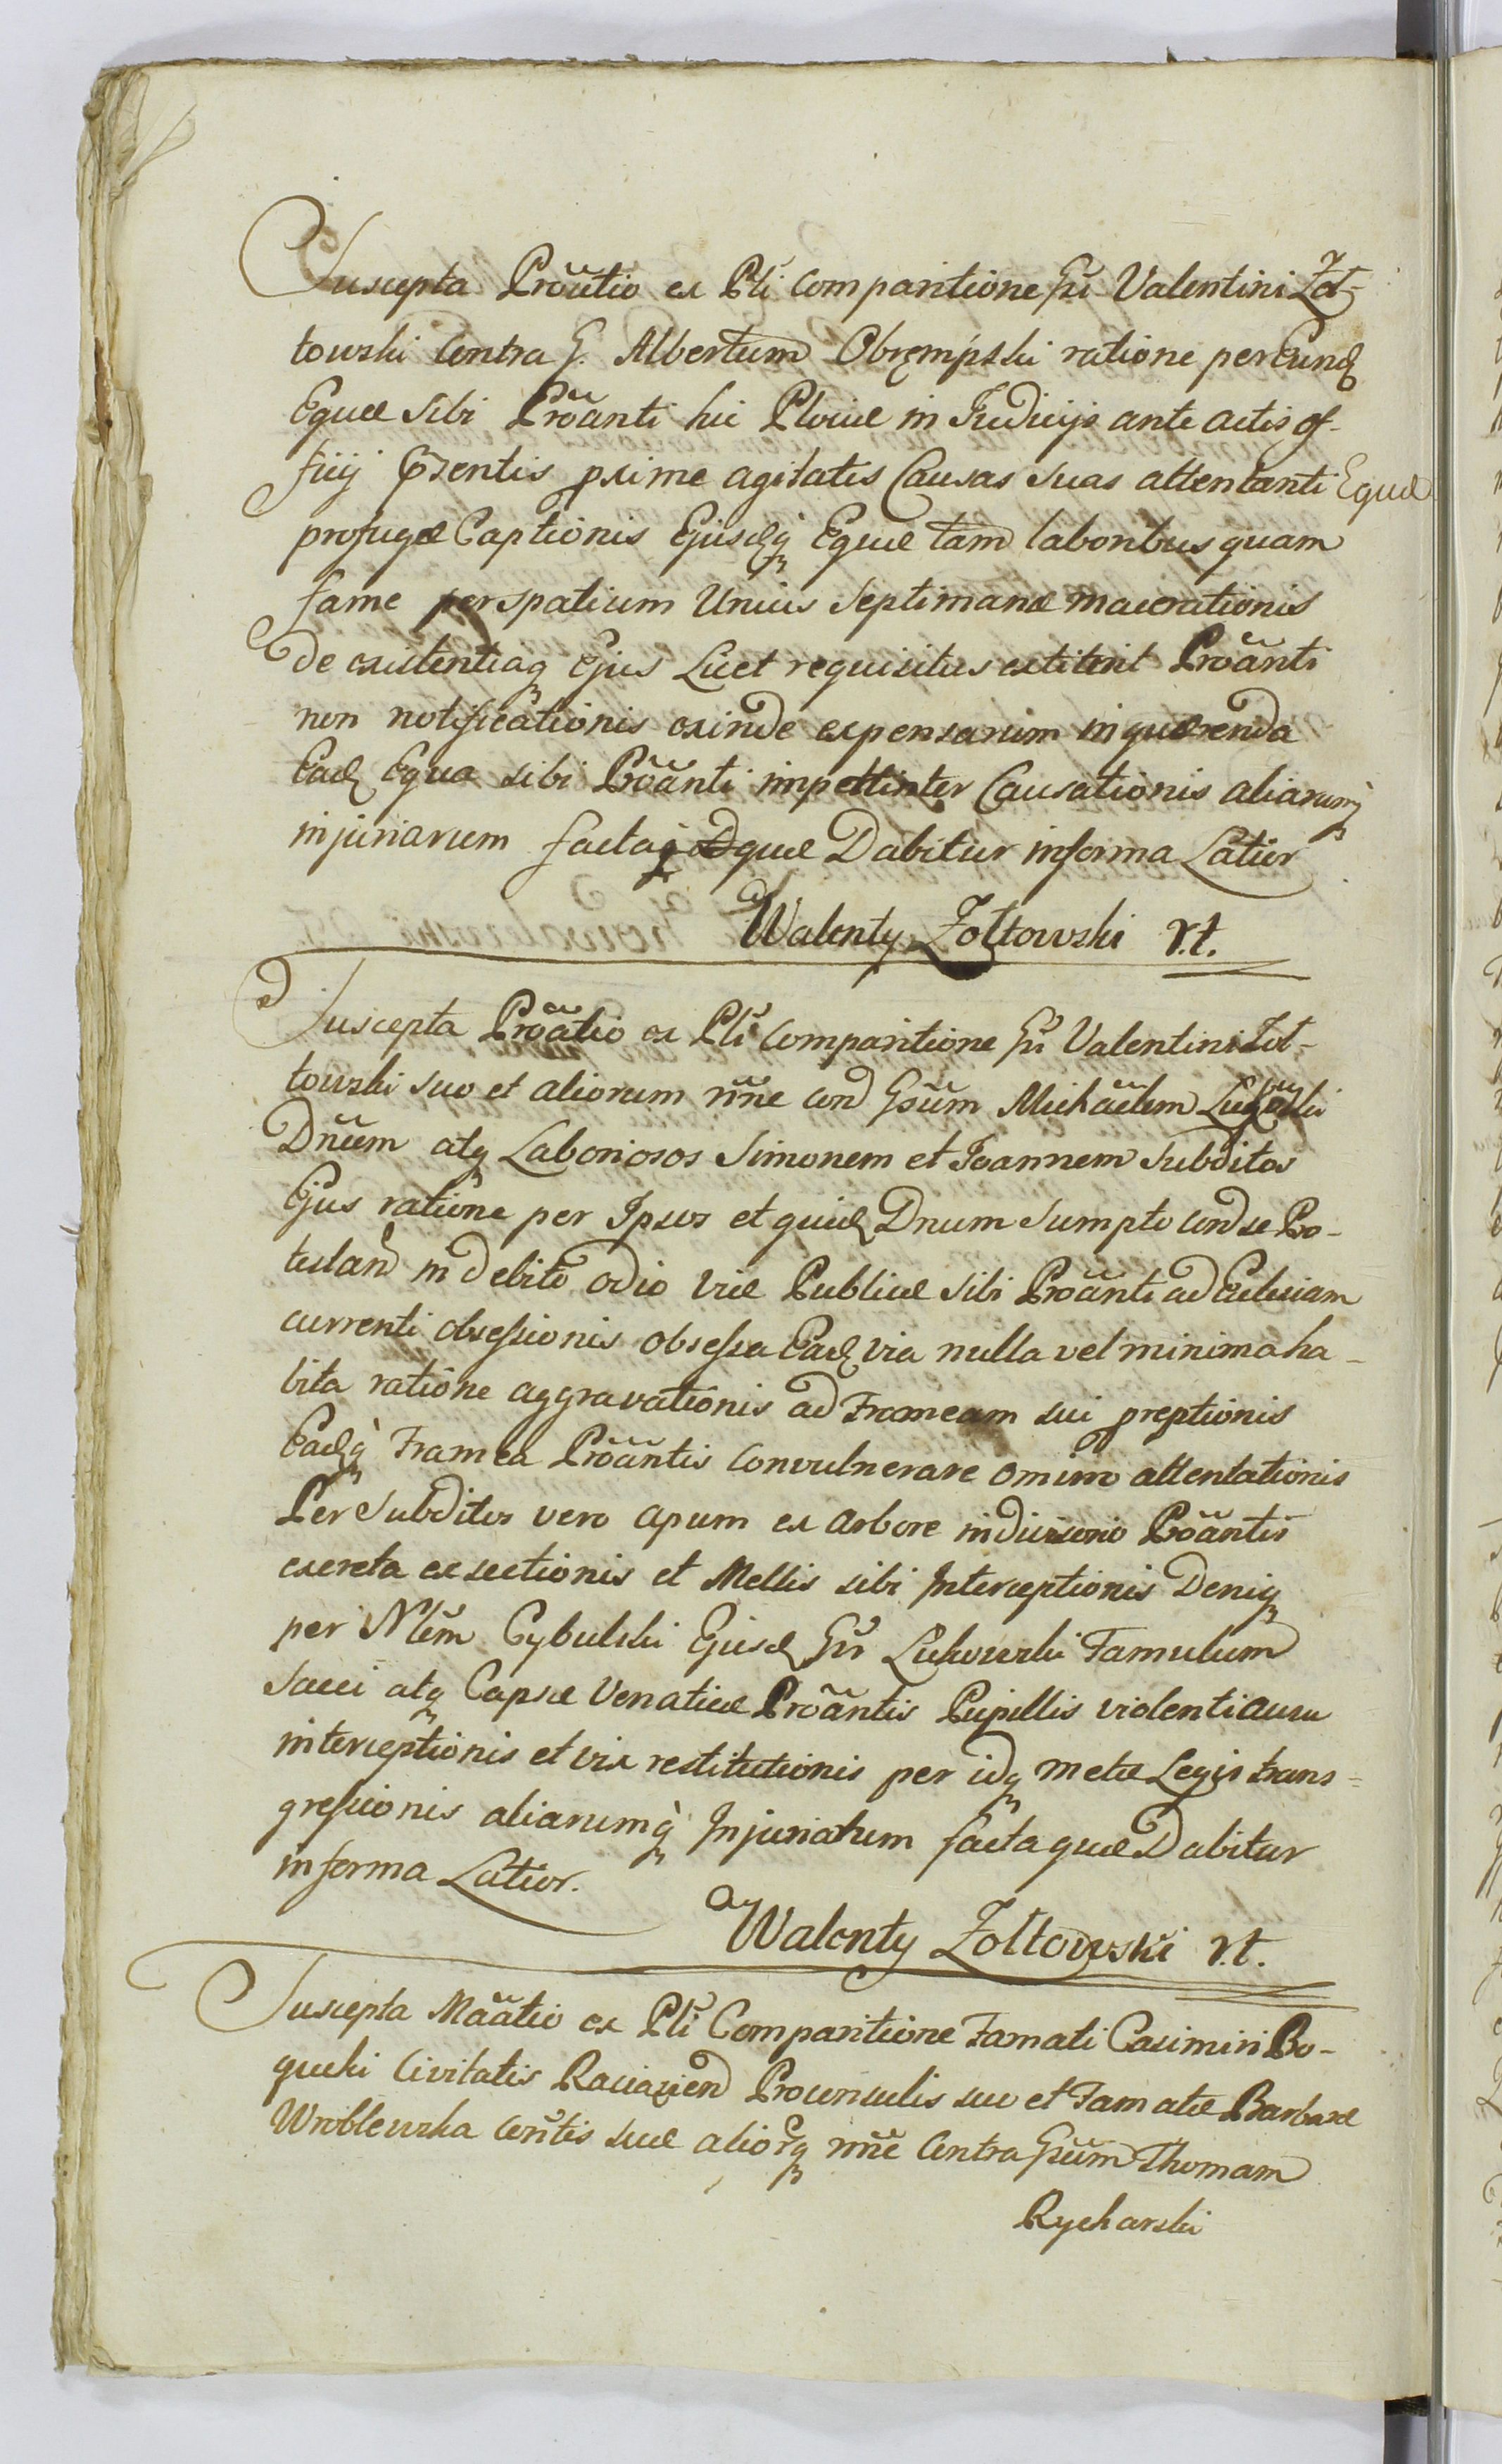 Suscepta Prõatio ex Pti Comparitione Gsi Valentini Żoł-
towski Contra G. Albertum Obrępski ratione per Eund
Equæ sibi Prõanti hic Plociæ in Judicijs ante actis of-
ficij prsentis pxime agitatis Causas suas attentanti Equæ
profugæ Captionis Ejusdq Equæ tam laboribus quam
fame per spatium Unius Septimanæ macerationis
de existentiaq Ejus Licet requisitus extiterit Prõanti
non notificationis exinde expensarum in quærenda
Ead Equa sibi Prõanti impertinter Causationis aliarumq
injuriarum facta quæ Dabitur in forma Latior
Walenty Zołtowski r.t.
Suscepta Prõatio ex Pti Comparitione Gsi Valentini Żoł-
towski suo et aliorum nñe con Gsum Michaëlem Lukoski
Dñum atq Laboriosos Simonem et Joannem Subditos
Ejus ratione per Ipsos et quid Dnum Sumpto con se Pro-
testan indebite odio viæ Publicæ sibi Prõanti ad Ecclesiam
currenti obsessionis obsessa Ead via nulla vel minima ha-
bita ratione aggravationis ad Frameam sui preptionis
Eadq Framea Prõantis Convulnerare omimo attentationis
Per Subditos vero apum ex arbore in diversorio Prõantis
exereta exsectionis et Mellis sibi Interceptionis Deniq
per Nlem Cybulski Ejusd Gsi Lukowski Famulum
Sacci atq Capsæ Venaticæ Prõantis Pupillis violenti ausu
interceptionis et vix restitutionis per idq metæ Legis trans=
gressionis aliarumq Injuriarum facta quæ Dabitur
in forma Latior.
Walenty Zołtowski r.t.
Suscepta Mãatio ex Pti Comparitione Famati Casimiri Bo-
gucki Civitatis Raciązien Proconsulis suo et Famatæ Barbaræ
Wroblewska Contis suæ aliorq nñe Contra Gsum Thomam
Rycharski